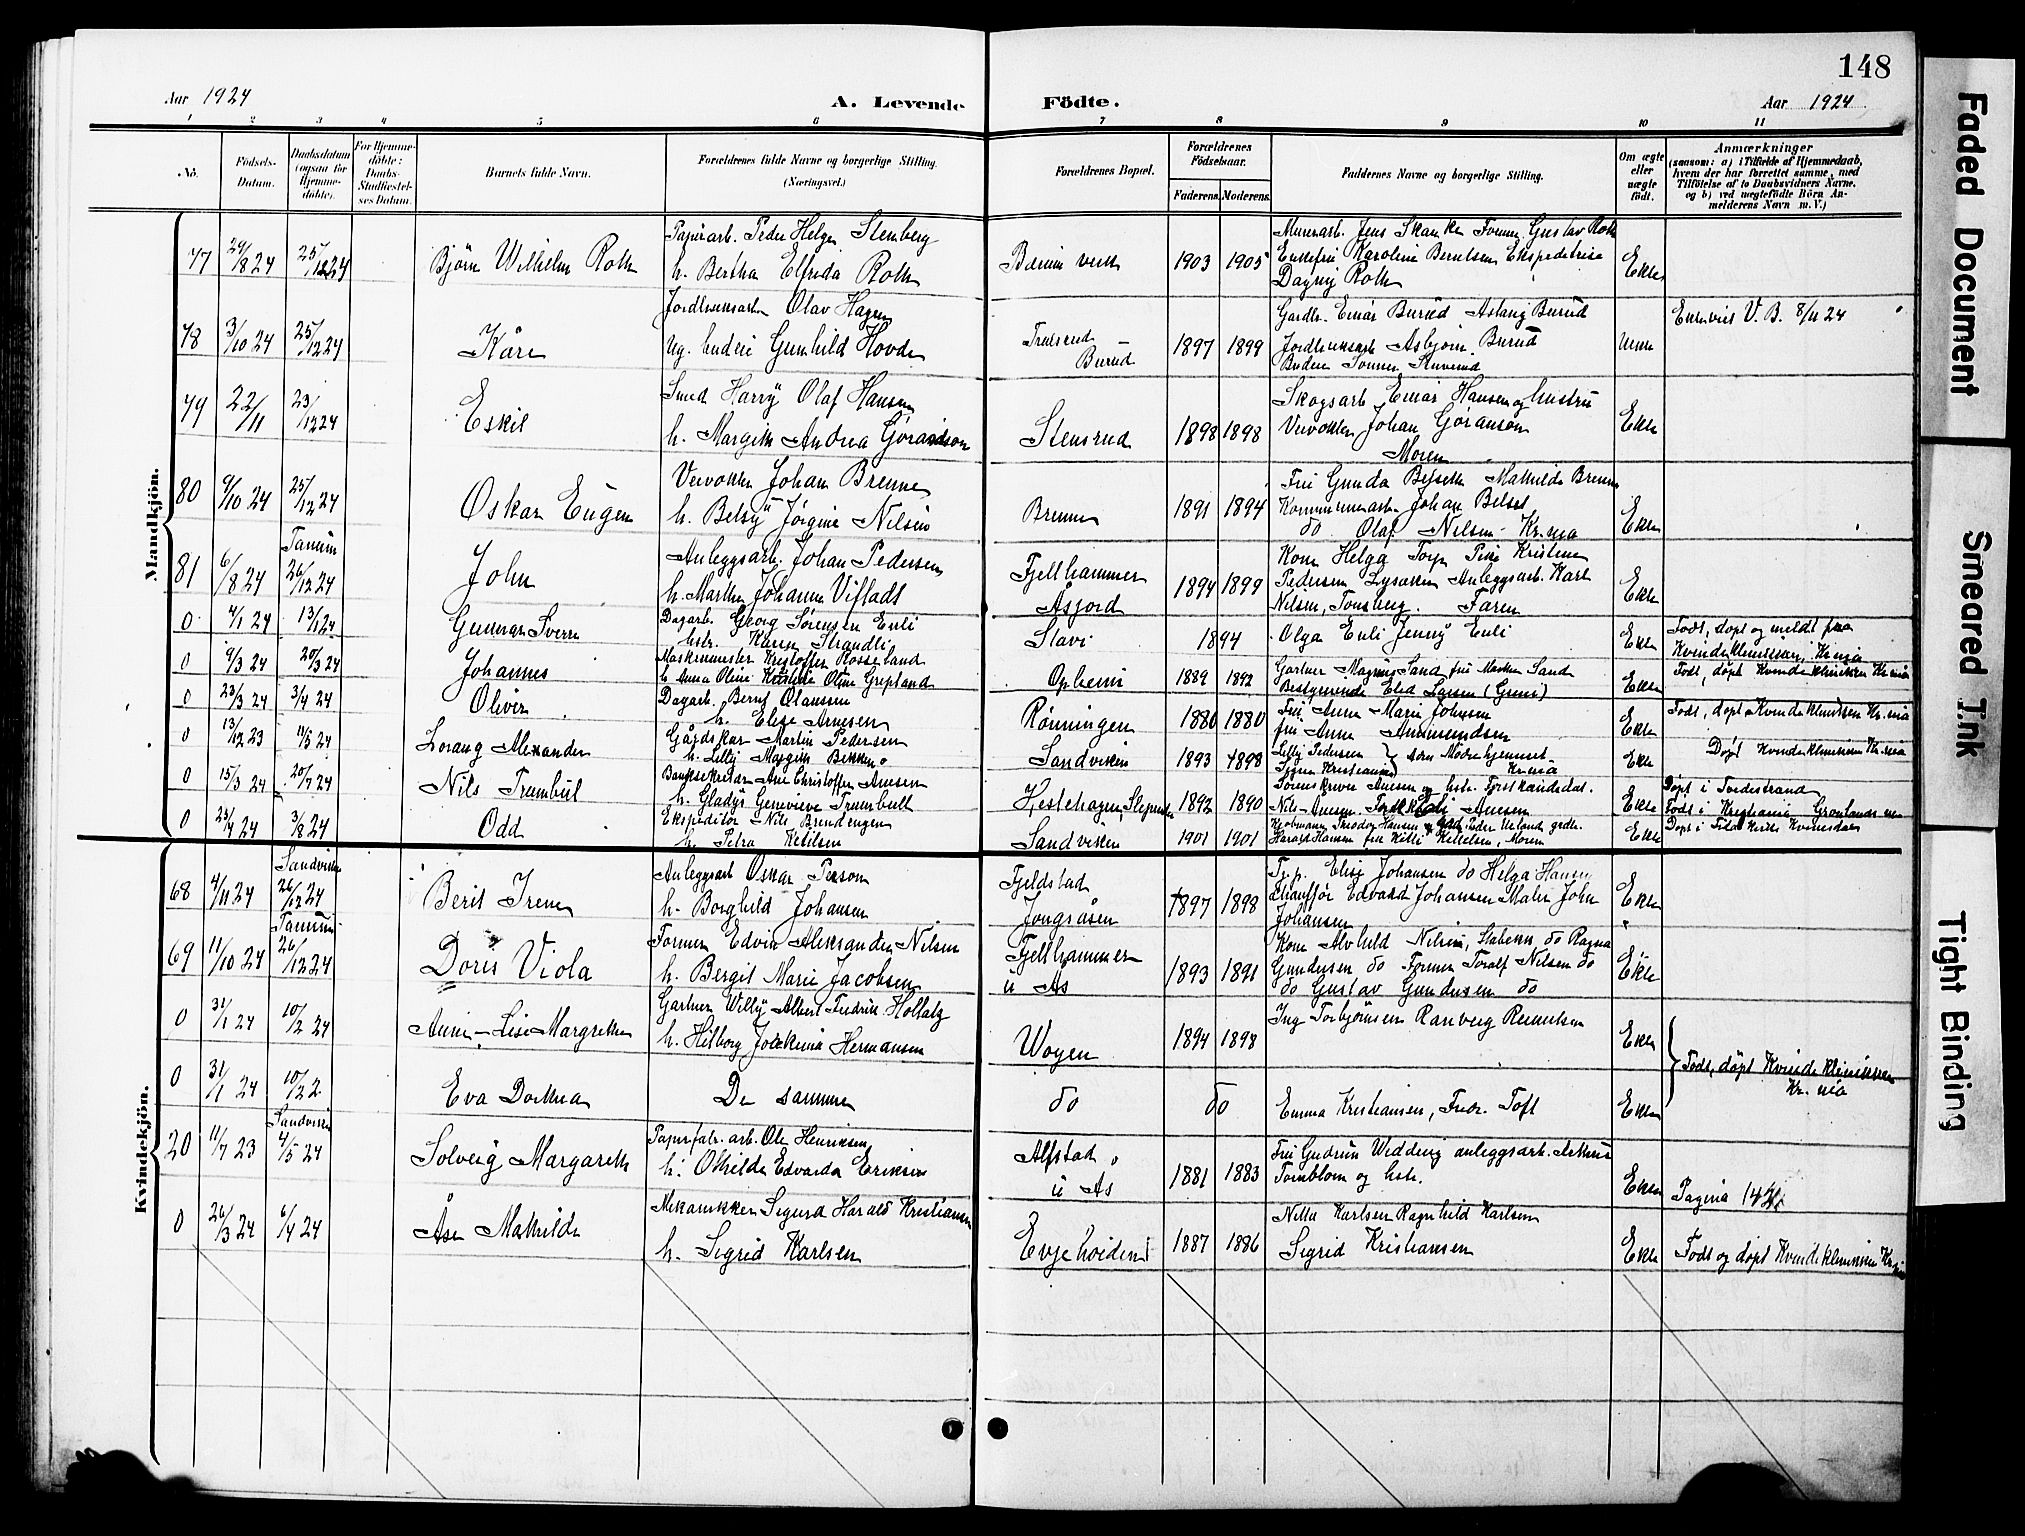 148
Aar 1924
A. Levende Födte.
Aar 1924
1 2 3 4 5 6 7 8 9 10 11
No.
Födsels-Datum.
Daabsdatum (ogsaa for Hjemmedöbte).
For Hjemmedöbte: Daabs-Stadfæstelses Datum.
Barnets fulde Navn.
Forældrenes fulde Navne og borgerlige Stilling. (Næringsvei.)
Forældrenes Bopæl.
Forældrenes Födselsaar.
Faderens. Moderens.
Faddernes Navne og borgerlige Stilling.
Om ægte eller uægte födt.
Anmærkninger
(saasom: a) i Tilfælde af Hjemmedaab, hvem der har forrettet samme, med Tilföielse af to Daabsvidners Navne. og b) ved uægtefödte Börn Anmelderens Navn m. V.)
Mandkjön.
77 29/8 24 25/12 24 Björn Wilhelm Roth
Papirarb. Peder Helge Stenberg
h. Bertha Elfrida Roth
Bærum verk 1903 1905
Murerarb. Jens Skanke Former Gustav Roth
Enkefru Karoline Berntsen Ekspeditrise
Dagny Roth
Ekte
78 3/10 24 25/12 24 Kåre
Jordbruksarb. Olav Hagen
Ug. Gunhild Hovde
Burud 1897 1899
Gardbr. Einar Burud Aslaug Burud
Jordbruksarb Asbjørn Burud
Uekte
V. B. 8/11 24
79 22/11 23/12 24 Eskil
Smed Harry Olaf Hansen
h. Margith Andrea Göransson
Stensrud 1898 1898
Skogsarb Einar Hansen og hustru
Johan Göranson
Moren
Ekte
80 9/10 24 25/12 24 Oskar Eugen
Johan Brenne
h. Betsy Jörgine Nilsen
Brenne 1891 1894
Fru Gunda Mathilde Brenne
Kommunearb. Johan
do Olaf Nilsen Kr.nia
Ekte
81 6/8 24 Tanum 26/12 24 John
Anleggsarb. Johan Pedersen
h. Marthe Johanne Vifladt
Fjellhammer
Åsjord 1894 1899
Kone Helga Torp Pike Kristine
Pedersen Lysaker Anleggsarb. Karl
Nilsen, Tønsberg. Faren
Ekte
0 4/1 24 13/1 24 Gunnar Sverre
Dagarb. Georg Sørensen Enli
hstr. Karen Strandli
Slavi 1894
Olga Enli Jenny Enli
Ekte
Født, døpt og meldt fra
Kvindeklinikken, Kr.nia
0 9/3 24 20/3 24 Johannes
Maskinmester Kristoffer Rosseland
h. Anna Oline Grepland
Opheim 1889 1892
Gartner Magnus Sand fru Marthe Sand
Bestyrerinde Elid Larsen
Ekte
Født, døpt Kvindeklinikken Kr.nia
0 23/3 24 3/4 24 Oliver
Dagarb. Bernt Olaussen
h. Elise Arnesen
Rönningen 1880 1880
Fru Anna Marie Johnsen
fru Anna Amundsen
Ekte
Født, døpt Kvindeklinikken Kr.nia
0 13/12 23 11/5 24 Lorang Alexander
Gårdskar Martin Pedersen
h. Lilly Margith Bekken
Sandviken 1893 1898
Lilly Pedersen
Signe Kristiansen
Kr.nia
Ekte
Døpt Kvindeklinikken Kr.nia
0 15/3 24 20/7 24 Nils Trumbul
Banksekretær Arne Christoffer Anesen
h. Gladys Genevieve Trumbull
Hestehagen, Slependen 1892 1890
Sorenskriver Anesen og hstr. Forstkandidat
Nils Anesen
Ekte
Døpt i Tvedestrand
Født i Kristiania
0 23/4 24 3/8 24 Odd
Ekspeditör Nils Brendengen
h. Petra Ketilsen
Sandviken 1901 1901
Kjøbmann Theodor Hansen
Harald Hansen fru Kitti Ketilsen, Moren
Ekte
Døpt i Kvinesdal
Kvindekjön.
68 4/11 24 Sandviken 26/12 24 Berit Irene
Anleggsarb Oskar Person
h. Borghild Johansen
Fjeldstad
Jongsåsen 1897 1898
Elise Johansen do Helga Hansen
Chauffør Edvard Johansen Maler John
Johansen
Ekte
69 11/10 24 Tanum 26/12 24 Doris Viola
Former Edvin Aleksander Nilsen
h. Bergit Marie Jacobsen
Fjellhammer
u Ås 1893 1891
Kone Alvhild Nilsen, Stabekk do Ragna
Gundersen do Former Toralf Nilsen do
do Gustav Gundersen do
Ekte
0 31/1 24 10/2 24 Anne-Lise Margrethe
Gartner Willy Albert Fredrik Hollatz
h. Hilborg Joakima Hermansen
Woyen 1894 1898
Ing Torbjørnsen Ranveig Berntsen
Ekte
0 31/1 24 10/2 2 Eva Dorthea
De samme
do do
Emma Kristiansen, Fredr. Toft
Ekte
Født, døpt Kvindeklinikken
Kr.nia
20 11/7 23 Sandviken 4/5 24 Solveig Margareth
Papirfabr. arb. Ole Henriksen
h. Othilde Edvarda Eriksen
Alfstad
u Ås 1881 1883
Fru Gudrun Wedding anleggsarb. Arthur
Tornblom og hstr.
Ekte
Pagina 142
0 26/3 24 6/4 24 Åse Mathilde
Mekaniker Sigurd Harald Kristiansen
h. Sigrid Karlsen
Evjehøiden 1887 1886
Nilla Karlsen Ragnhild Karlsen
Sigrid Kristiansen
Ekte
Født og døpt Kvindeklinikken Kr.nia
Faded Document
Smeared Ink
Tight Binding